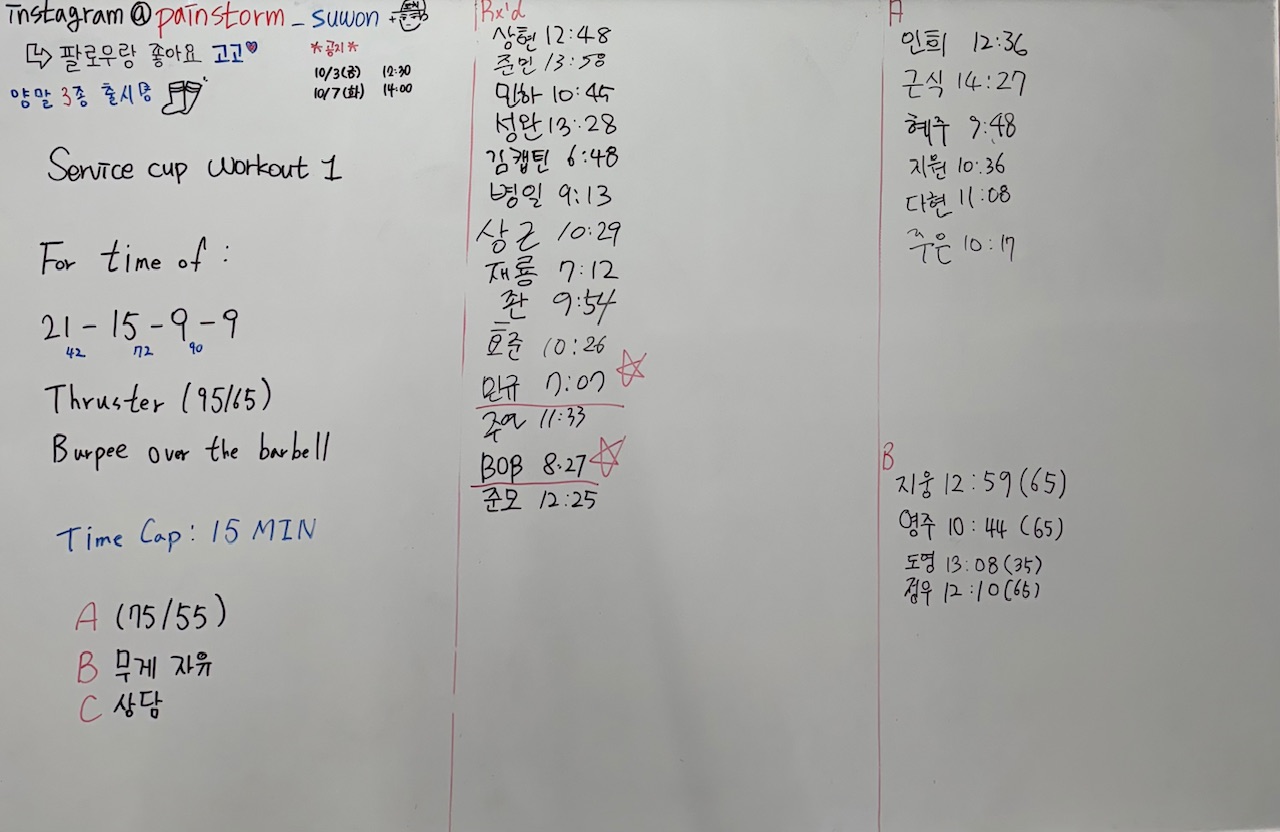 instagram @ painstorm _ suwon +
팔로우랑 좋아요 고고
양말 3종 출시중
*공지*
10/3(금) 12:30
10/7(화) 14:00
Service cup Workout 1
For time of :
21 - 15 - 9 - 9
42 72 90
Thruster (95/65)
Burpee over the barbell
Time Cap : 15 MIN
A (75/55)
B 무게 자유
C 상담
Rx'd
상현 12:48
준민 13:58
민하 10:45
성완 13:28
김캡틴 6:48
병일 9:13
상근 10:29
재룡 7:12
좐 9:54
효준 10:26
민규 7:07
주여 11:33
BOB 8:27
준모 12:25
A
인희 12:36
근식 14:27
혜주 9:48
지원 10:36
다현 11:08
주은 10:17
B
지웅 12:59 (65)
영주 10:44 (65)
도영 13:08 (35)
정우 12:10 (65)